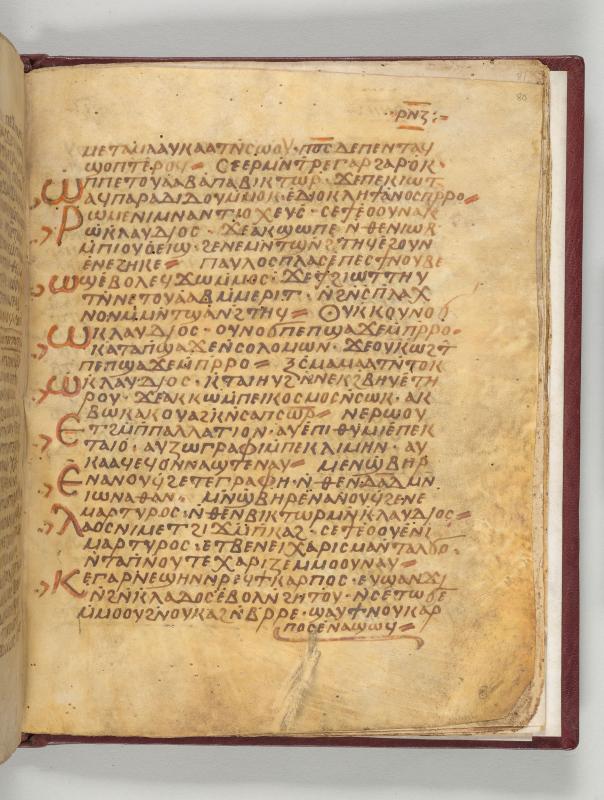 ⲣⲛⲍ
ϣⲟⲡⲧⲉⲣⲟϥ= ⲥⲉⲉⲣⲙⲛⲧⲣⲉⲅⲁⲣϩⲁⲣⲟⲕ·
ⲡⲡⲉⲧⲟⲩⲁⲁⲃⲁⲡⲁⲃⲓⲕⲧⲱⲣ· ϫⲉⲡⲉⲕⲓⲱⲧ
ⲱ ⲁϥⲡⲁⲣⲁⲇⲓⲇⲟⲩⲙⲙⲟⲕ· ⲉⲇⲓⲟⲕⲗⲏⲧⲁⲛⲟⲥⲡⲣⲣⲟ=
ⲣⲱⲙⲉⲛⲓⲙⲛⲁⲛⲧⲓⲟⲭⲉⲩⲥ· ⲥⲉϯⲉⲟⲟⲩⲛⲁⲕ
ⲱⲕⲗⲁⲩⲇⲓⲟⲥ· ϫⲉⲁⲕϣⲱⲡⲉ ⲛⲑⲉⲛⲓⲱⲃ·
ⲙⲡⲓⲟⲩⲟⲉⲓϣ· ϩⲉⲛⲉⲙⲛⲧϣⲛϩⲧⲏϥⲉϩⲟⲩⲛ
ⲉⲛⲉϩⲏⲕⲉ= ⲡⲁⲩⲗⲟⲥⲡⲗⲁⲥⲉⲡⲉⲥϯⲛⲟⲩⲃⲉ
ⲱ ϣⲉⲃⲟⲗⲉϥϫⲱⲙⲙⲟⲥ· ϫⲉϯϩⲓⲱⲧⲧⲏⲩ
ⲧⲛⲛⲉⲧⲟⲩⲁⲁⲃⲙⲙⲉⲣⲓⲧ· ⲛϩⲛⲥⲡⲗⲁⲭ
ⲛⲟⲛⲙⲙⲛⲧϣⲁⲛϩⲧⲏϥ= ⲟⲩⲕⲕⲟⲩⲛⲟϭ
ⲱⲕⲗⲁⲩⲇⲓⲟⲥ· ⲟⲩⲛⲟϭⲡⲉⲡϣⲁϫⲉⲙⲡⲣⲣⲟ·
ⲕⲁⲧⲁⲡϣⲁϫⲉⲛⲥⲟⲗⲟⲙⲱⲛ· ϫⲉⲟⲩⲕⲱϩⲧ
ⲡⲉⲡϣⲁϫⲉⲙⲡⲣⲣⲟ=
ⲱⲕⲗⲁⲩⲇⲓⲟⲥ· ⲕⲧⲁⲓⲏⲩϩⲛⲛⲉⲕϩⲃⲏⲩⲉⲧⲏ
ⲣⲟⲩ· ϫⲉⲁⲕⲕⲱⲙⲡⲉⲓⲕⲟⲥⲙⲟⲥⲛⲥⲱⲕ· ⲁⲕ
ⲃⲱⲕⲁⲕⲟⲩⲁϩⲕⲛⲥⲁⲡⲥⲱⲣ= ⲛⲉⲣⲱⲟⲩ
ⲉⲧϩⲙⲡⲡⲁⲗⲗⲁⲧⲓⲟⲛ· ⲁⲩⲉⲡⲓⲑⲩⲙⲓⲉⲡⲉⲕ
ⲧⲁⲓⲟ· ⲁⲩⲍⲱⲅⲣⲁⲫⲓⲙⲡⲉⲕⲗⲓⲙⲏⲛ· ⲁⲩ
ⲕⲁⲁϥⲉϥⲟⲛⲛⲁϣⲧⲉⲛⲁⲩ= ⲙⲉⲛϣⲃⲏⲣ
ⲉⲛⲁⲛⲟⲩϥϩⲉⲧⲉⲅⲣⲁⲫⲏ· ⲛⲑⲉⲛⲇⲁⲇⲙⲛ
ⲓⲱⲛⲁⲑⲁⲛ· ⲙⲛϣⲃⲏⲣⲉⲛⲁⲛⲟⲩϥϩⲉⲛⲉ
ⲙⲁⲣⲧⲩⲣⲟⲥ· ⲛⲑⲉⲛⲃⲓⲕⲧⲱⲣⲙⲛⲕⲗⲁⲩⲇⲓⲟⲥ=
ⲗⲁⲟⲥⲛⲓⲙⲉⲧϩⲓϫⲙⲡⲕⲁϩ· ⲥⲉϯⲉⲟⲟⲩⲉⲛⲓ
ⲙⲁⲣⲧⲩⲣⲟⲥ· ⲉⲧⲃⲉⲛⲉⲓⲭⲁⲣⲓⲥⲙⲁⲛⲧⲁⲗϭⲟ·
ⲛⲧⲁⲡⲛⲟⲩⲧⲉⲭⲁⲣⲓⲍⲉⲙⲙⲟⲟⲩⲛⲁⲩ=
ⲕⲉⲅⲁⲣⲛⲉϣⲏⲛⲛⲣⲉϥϯⲕⲁⲣⲡⲟⲥ· ⲉⲩϣⲁⲛϫⲓ
ⲛϩⲛⲕⲗⲁⲇⲟⲥⲉⲃⲟⲗⲛϩⲏⲧⲟⲩ· ⲛⲥⲉⲧⲱϭⲉ
ⲙⲙⲟⲟⲩϩⲛⲟⲩⲕⲁϩⲛⲃⲣⲣⲉ· ϣⲁⲩϯⲛⲟⲩⲕⲁⲣ
ⲡⲟⲥⲉⲛⲁϣⲱϥ=